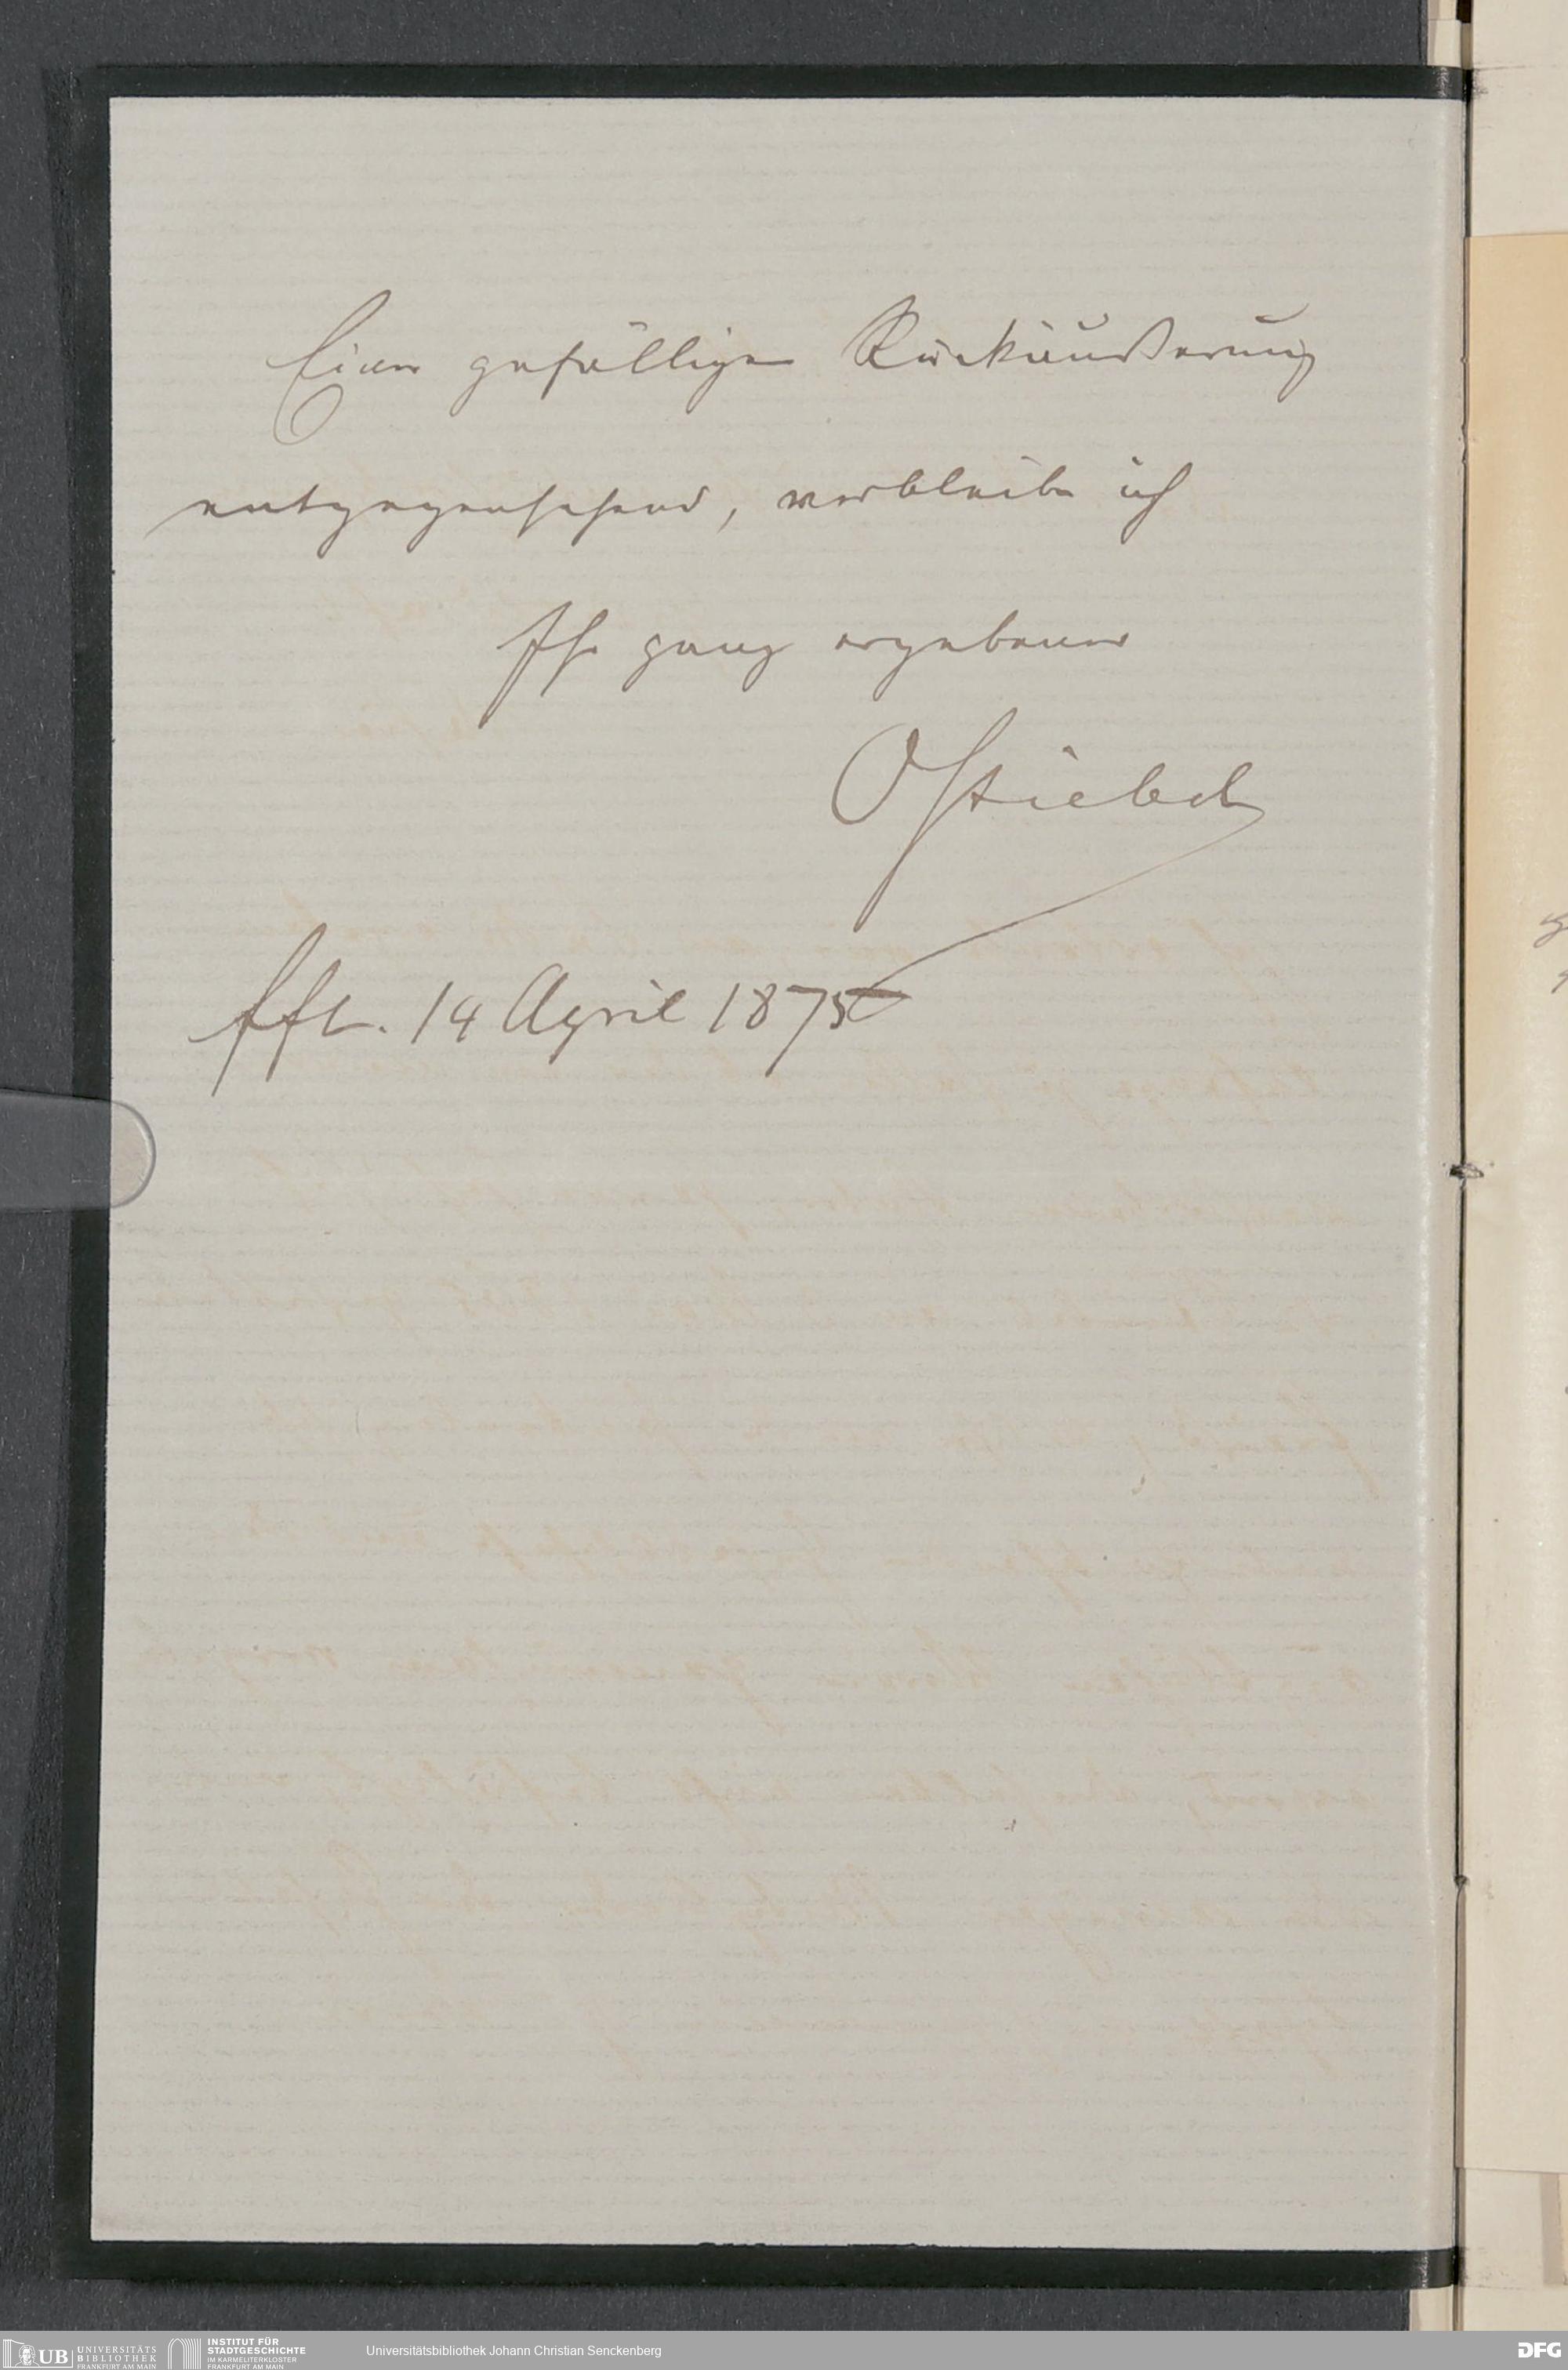 Einer gefälligen Rückäußerung
entgegensehend, verbleibe ich
Ihr ganz ergebener
OStiebel
Fft. 14 April 1875
UB UNIVERSITÄTS
BIBLIOTHEK
FRANKFURT AM MAIN
INSTITUT FÜR
STADTGESCHICHTE
IM KARMELITERKLOSTER
FRANKFURT AM MAIN
Universitätsbibliothek Johann Christian Senckenberg
DFG